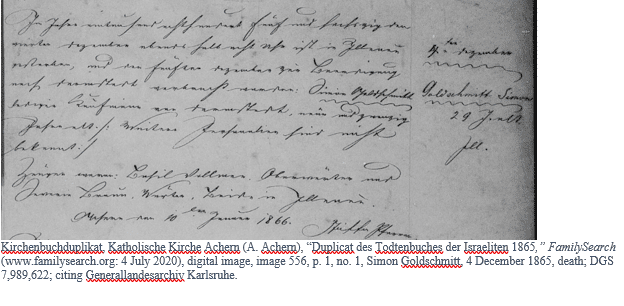 Im Jahre eintausend achthundert fünf und sechzig den
vierten Dezember abends halb acht Uhr ist in Illenau
gestorben, und den fünften Dezember zur Beerdigung
nach Darmstadt verbracht worden: Simon Goldschmitt
lediger Kaufmann von Darmstadt, neun und zwanzig
Jahre alt ./. Weitere Personalien sind nicht
bekannt ./.
Zeugen waren: Basil Vollmer, Oberwärter und
Severin Braun, Wärter, beide in Illenau.
Achern den 10ten Januar 1866.
4ten Dezember
Goldschmitt Simon
29 J. alt
Ill.
Kirchenbuchduplikat, Katholische Kirche Achern (A. Achern), “Duplicat des Todtenbuches der Israeliten 1865,” FamilySearch
(www.familysearch.org: 4 July 2020), digital image, image 556, p. 1, no. 1, Simon Goldschmitt, 4 December 1865, death; DGS
7,989,622; citing Generallandesarchiv Karlsruhe.